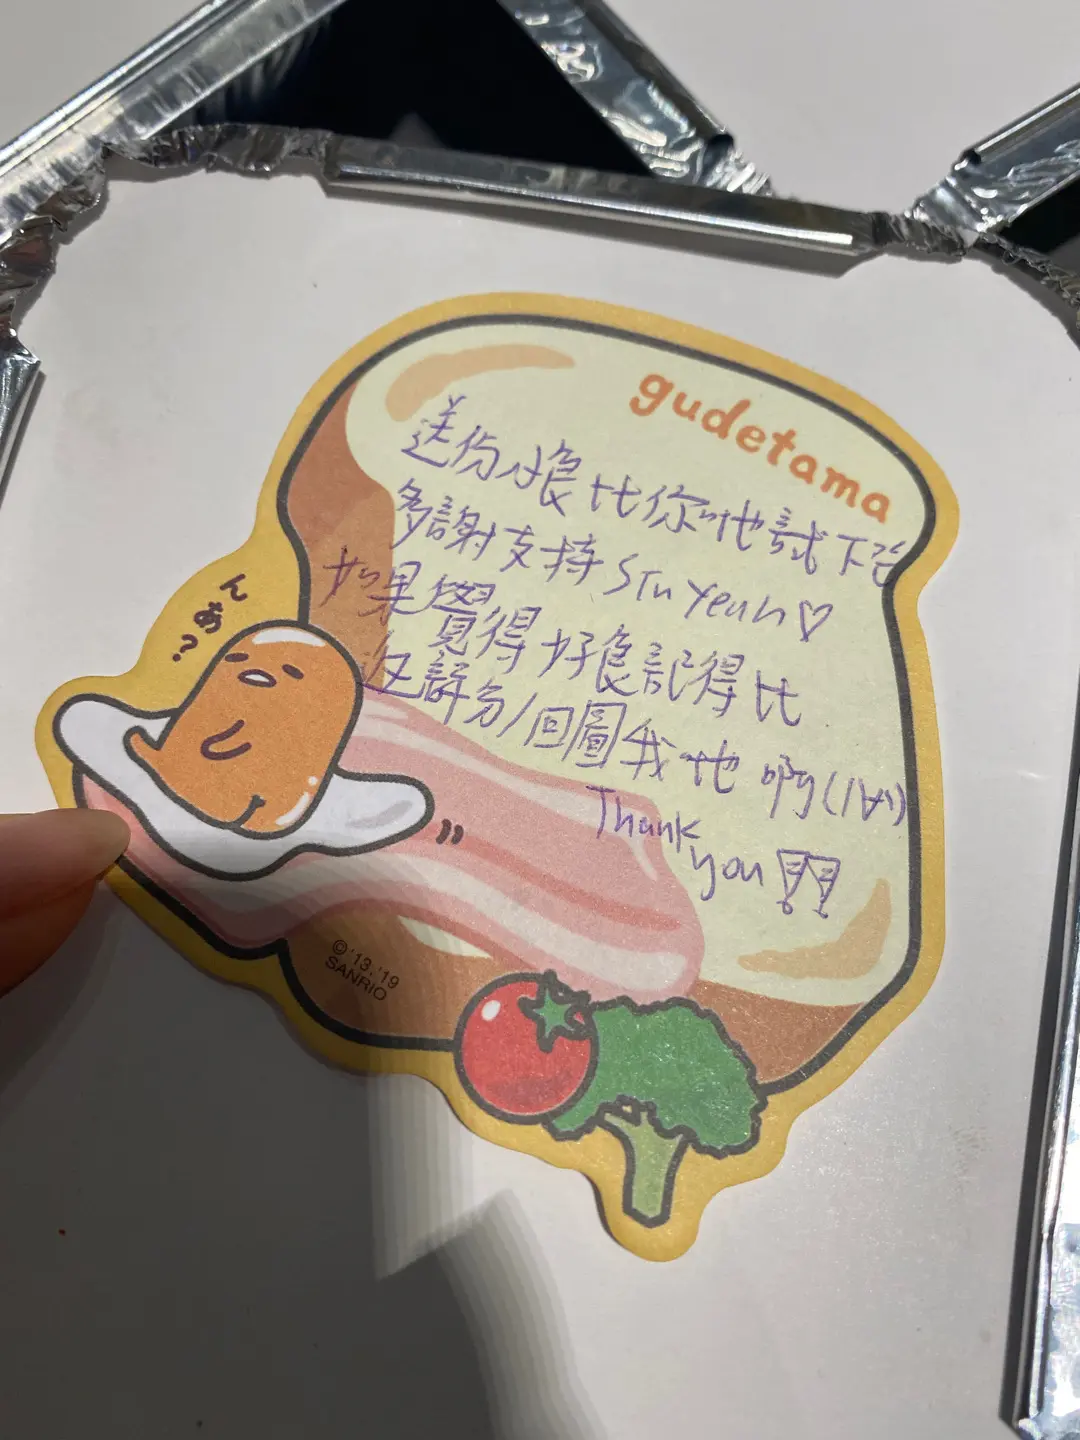 gudetama
送份小食比你哋試下
多謝支持 Stu Yeun♡
如果覺得好食記得比
返評分/回圖我哋 啊
Thank
you
んあ?
© '13, '19
SANRIO